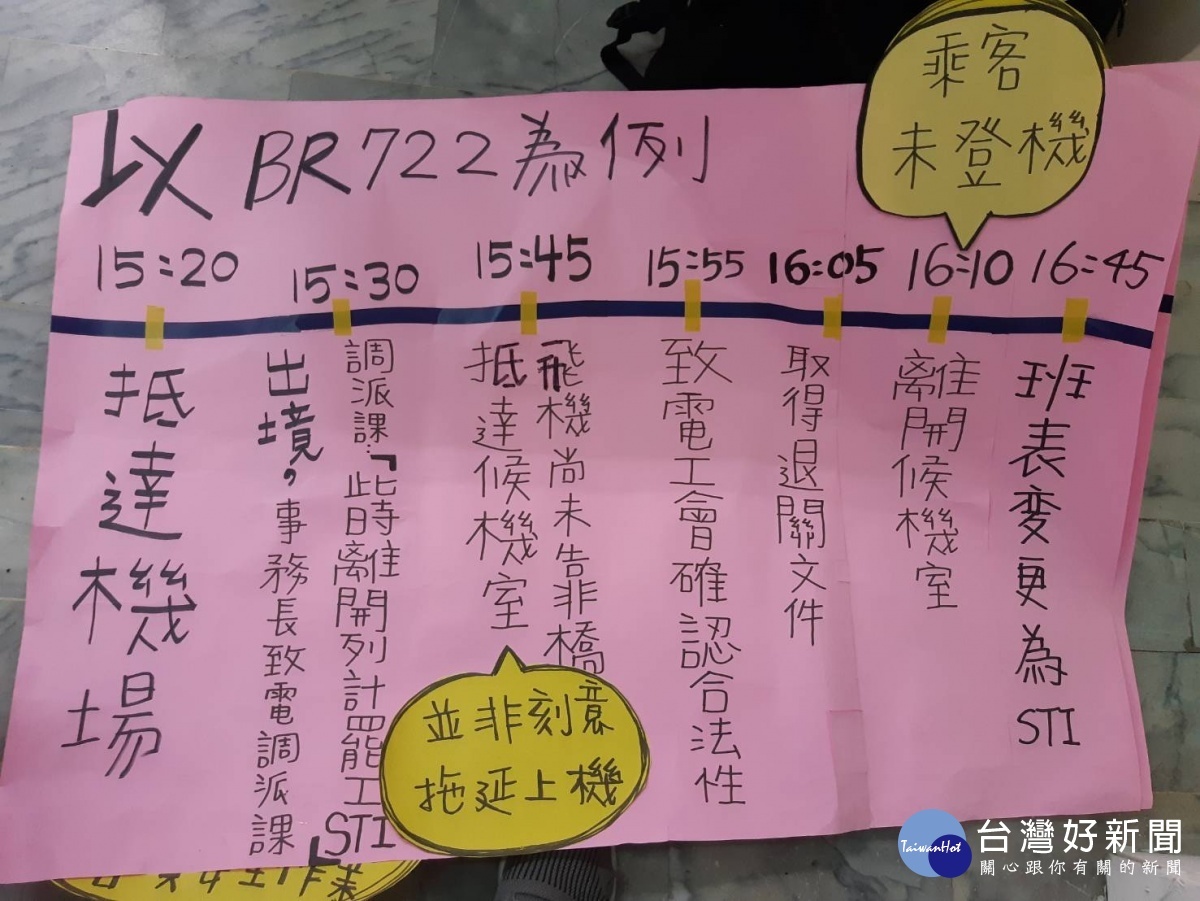 以BR722為例
乘客
未登機
15:20
抵達機場
15:30
調派課:「此時離開列計罷工
STI」
出境,事務長致電調派課
15:45
飛機尚未告非橋
抵達候機室
並非刻意
拖延上機
15:55
致電工會確認合法性
16:05
取得退關文件
16:10
離開候機室
16:45
班表變更為STI
TaiwanHot
台灣好新聞
關心跟你有關的新聞